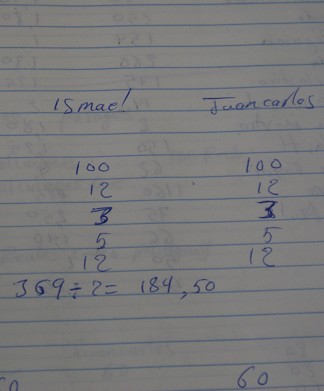 Ismael Juancarlos
100 100
12 12
3 3
5 5
12 12
369÷2= 184,50
60